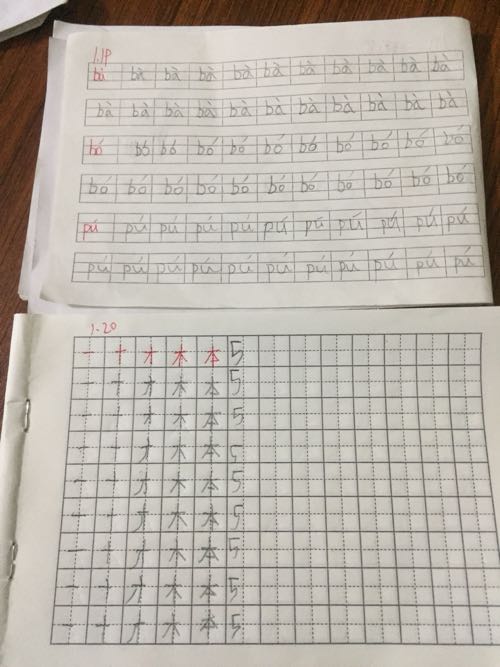 1.19
bà bà bà bà bà bà bà bà bà bà bà
bà bà bà bà bà bà bà bà bà bà bà
bó bó bó bó bó bó bó bó bó bó bó
bó bó bó bó bó bó bó bó bó bó bó
pú pú pú pú pú pú pú pú pú pú pú
pú pú pú pú pú pú pú pú pú pú pú
1-20
一 十 才 木 本 5
一 十 才 木 本 5
一 十 才 木 本 5
一 十 才 木 本 5
一 十 才 木 本 5
一 十 才 木 本 5
一 十 才 木 本 5
一 十 才 木 本 5
一 十 才 木 本 5